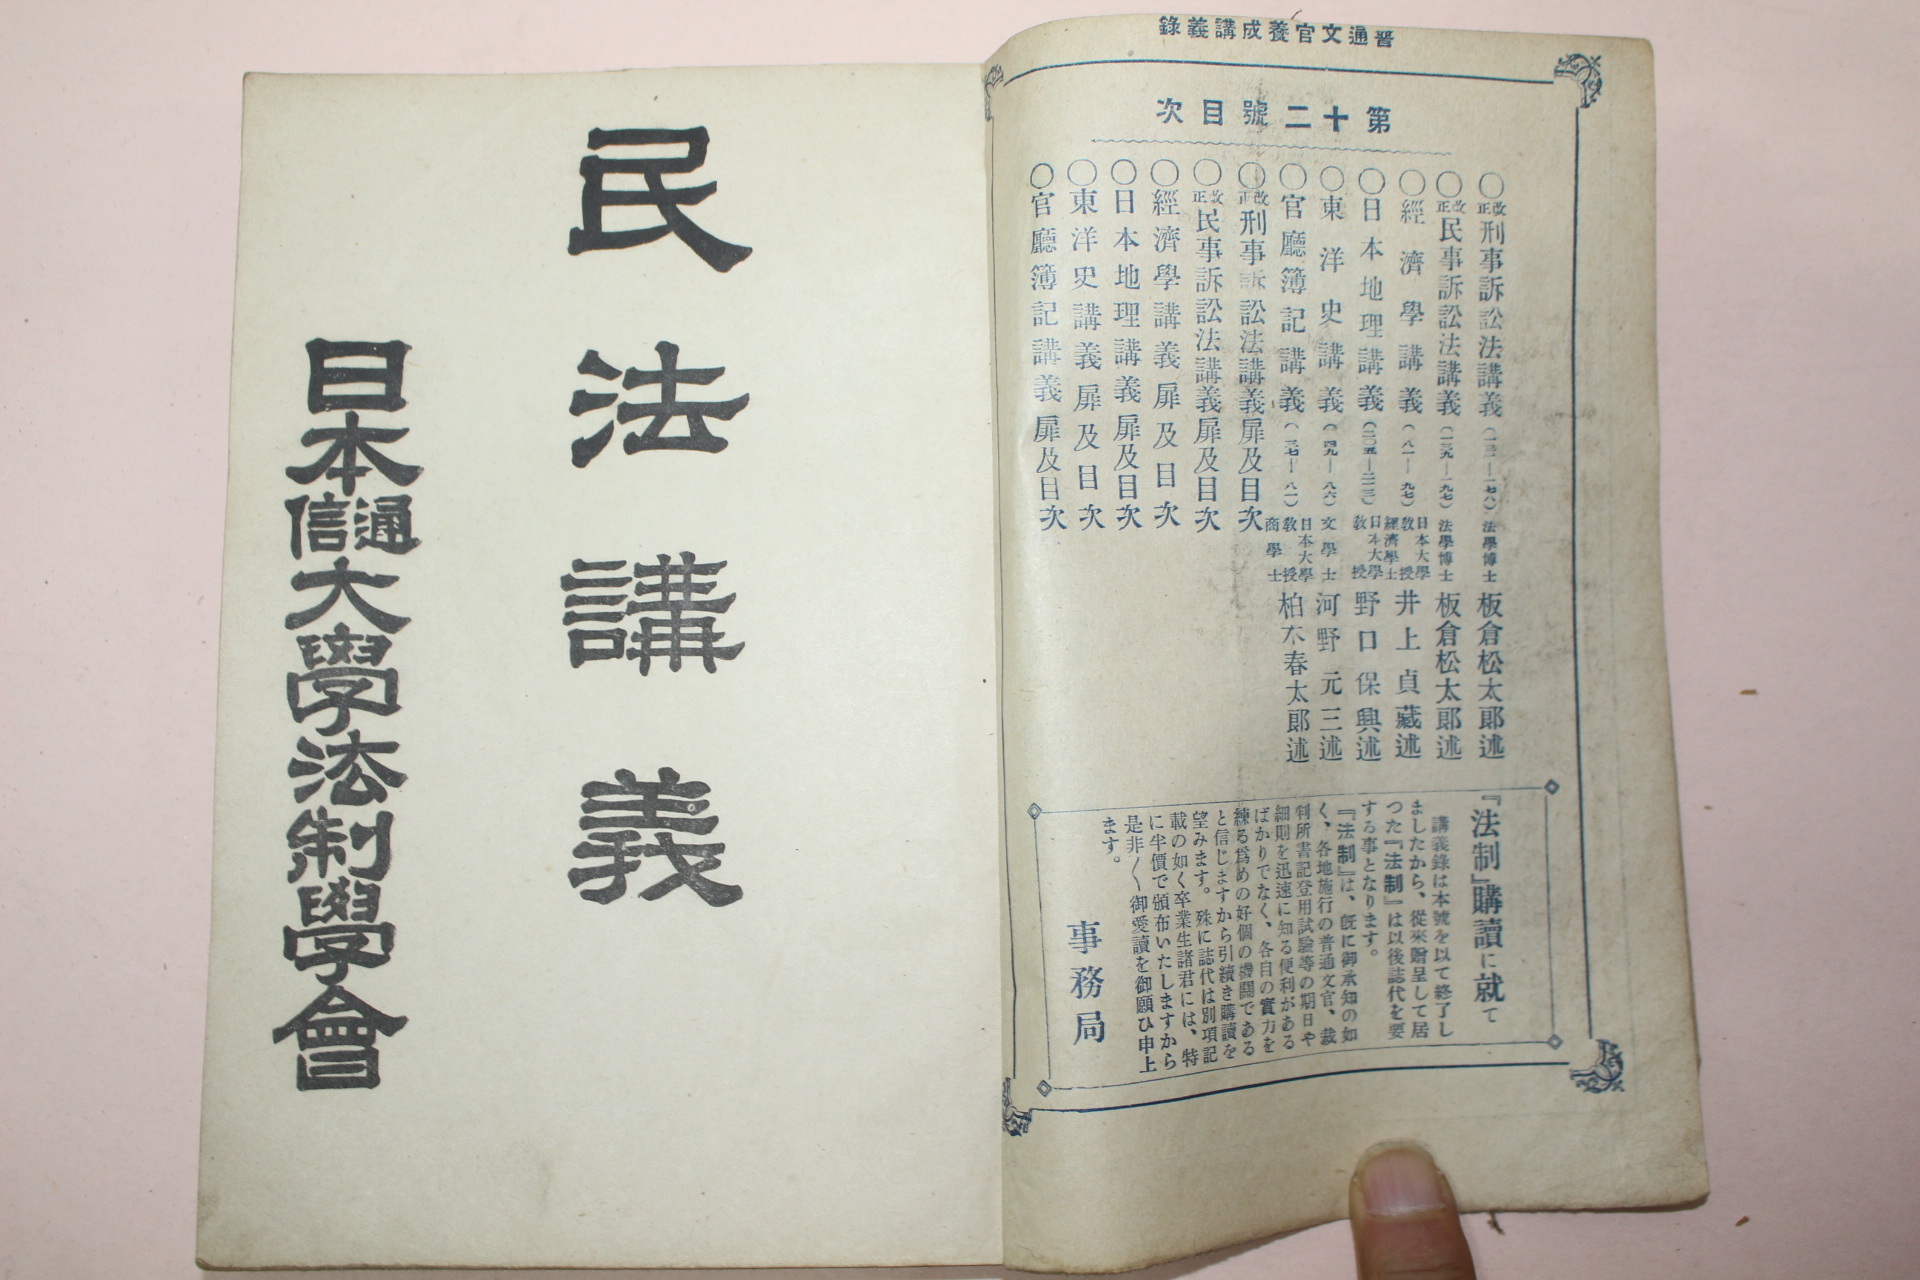 普通文官養成講義錄
第十二號目次
○改正刑事訴訟法講義 法學博士 板倉松太郞述
○改正民事訴訟法講義(一三九—一九七) 法學博士 板倉松太郞述
○經濟學講義(八一—九七) 日本大學教授 經濟學士 井上貞藏述
○日本地理講義 日本大學教授 野口保興述
○東洋史講義 文學士 河野元三述
○官廳簿記講義 日本大學教授 商學士 柏木春太郞述
○改正刑事訴訟法講義扉及目次
○改正民事訴訟法講義扉及目次
○經濟學講義扉及目次
○日本地理講義扉及目次
○東洋史講義扉及目次
○官廳簿記講義扉及目次
『法制』購讀に就て
講義錄は本號を以て終了し
ましたから、從來贈呈して居
つた『法制』は以後誌代を要
する事となります。
『法制』は、既に御承知の如
く、各地施行の普通文官、裁
判所書記登用試驗等の期日や
細則を迅速に知る便利がある
ばかりでなく、各自の實力を
練る爲めの好個の機關である
と信じますから引續き購讀を
望みます。殊に誌代は別項記
載の如く卒業生諸君には、特
に半價で頒布いたしますから
是非〱御愛讀を御願ひ申上
ます。
事務局
民法講義
日本通信大學法制學會